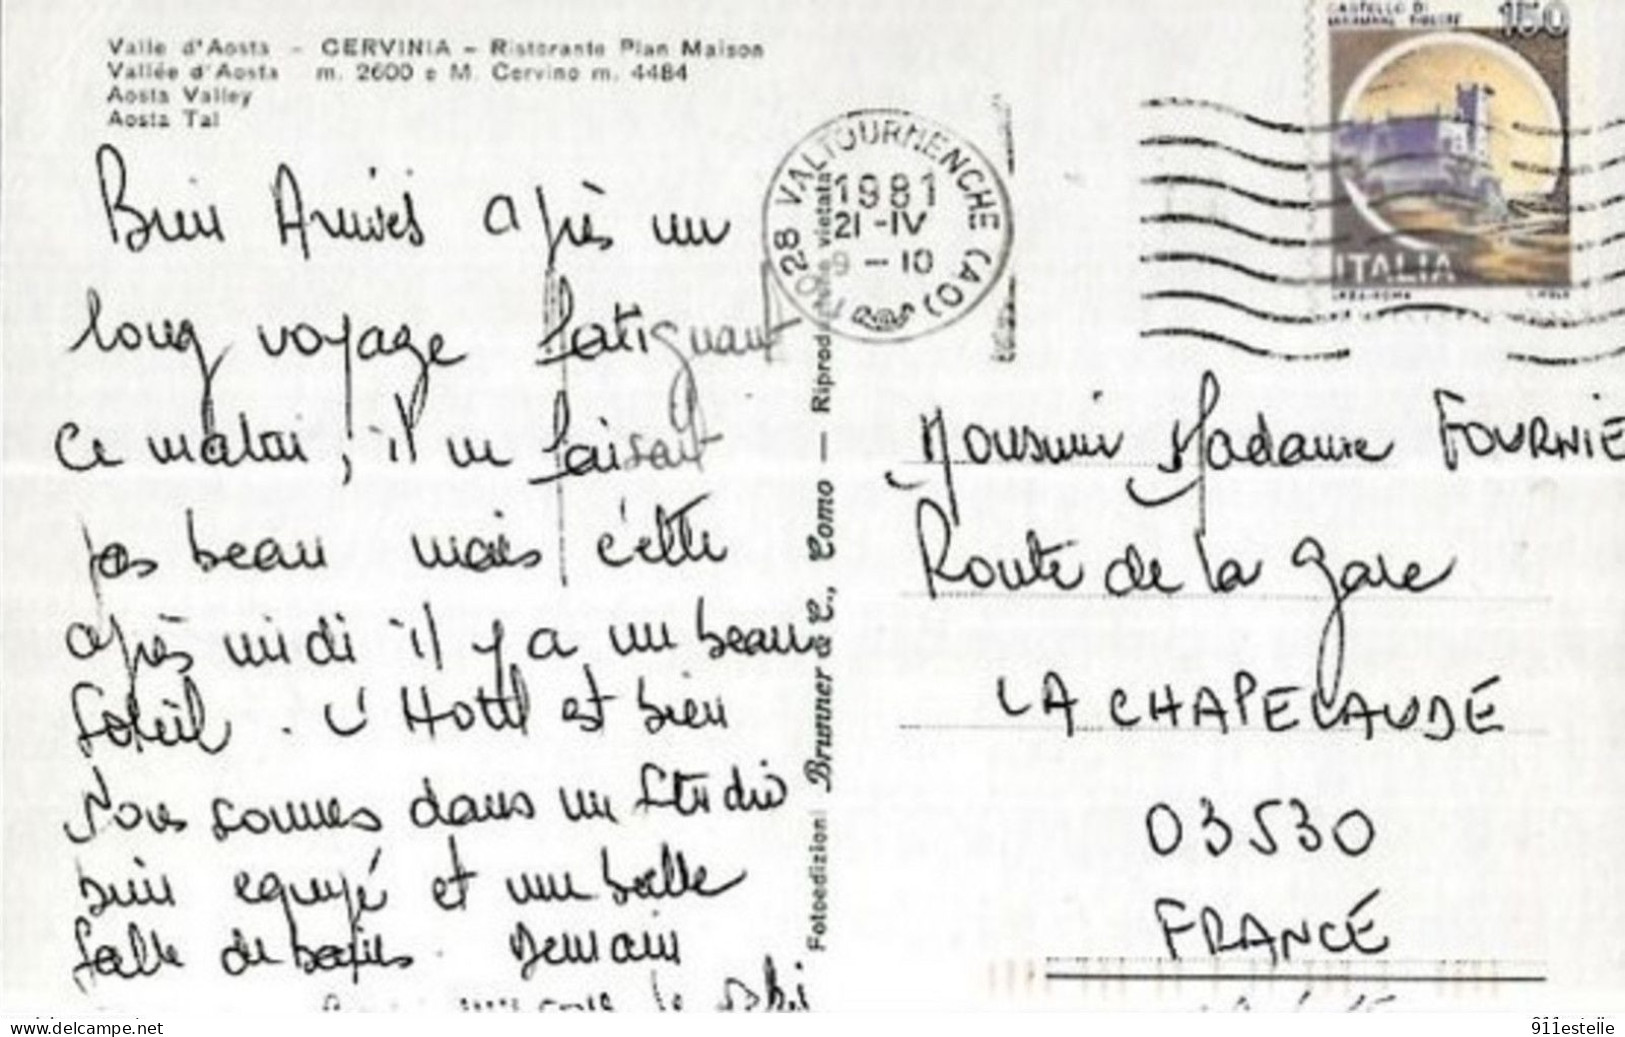 Valle d'Aosta - CERVINIA - Ristorante Plan Maison
Vallée d'Aosta m. 2600 e M. Cervino m. 4484
Aosta Valley
Aosta Tal
Bien Arrivés après un
long voyage fatiguant
ce matin, il ne faisait
pas beau mais cette
après midi il y a un beau
Soleil. L'Hotel est bien
Nous sommes dans un Studio
bien equipé et une belle
Salle de bains. Demain
le ski
Fotoedizioni Brunner & C., Como - Riprod. vietata
28 VALTOURNENCHE (AO)
1981
21-IV
9-10
CASTELLO DI
150
ITALIA
Monsieur Madame FOURNIE
Route de la gare
LA CHAPELAUDE
03530
FRANCE
https://www.delcampe.net
911estelle